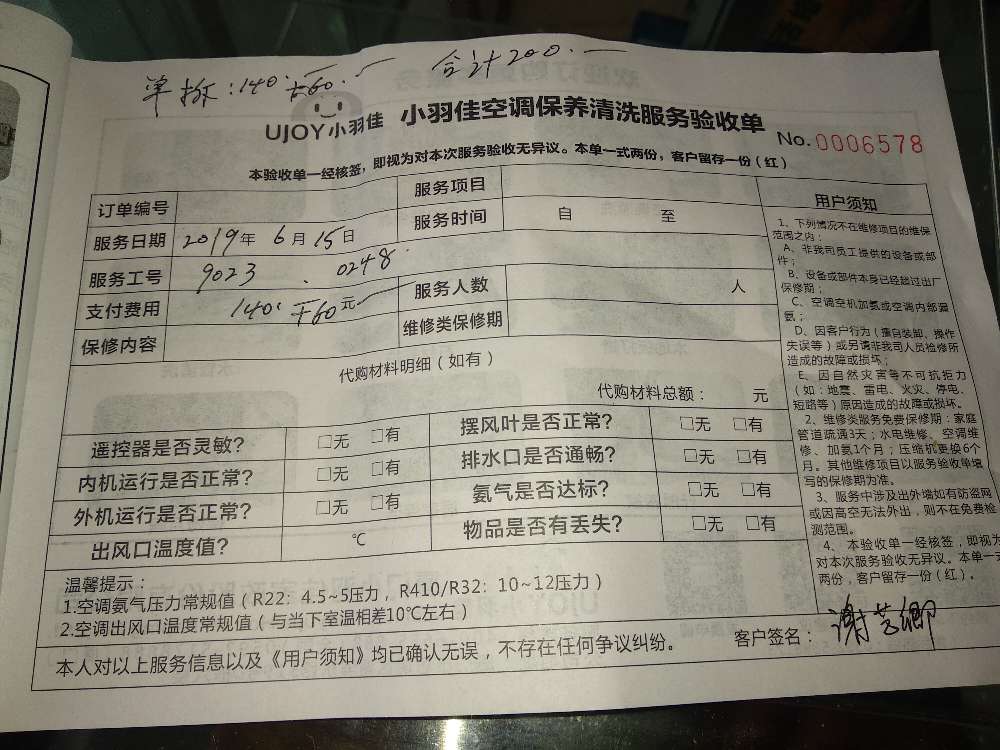 单拆:140. 干60.一 合计200.一
UJOY小羽佳 小羽佳空调保养清洗服务验收单
No.0006578
本验收单一经核签,即视为对本次服务验收无异议。本单一式两份,客户留存一份(红)
订单编号 服务项目
服务日期 2019年6月15日 服务时间 自 至
服务工号 9023 . 0248
支付费用 140. 干60元 服务人数 人
保修内容 维修类保修期
代购材料明细(如有)
代购材料总额: 元
遥控器是否灵敏? □无 □有 摆风叶是否正常? □无 □有
内机运行是否正常? □无 □有 排水口是否通畅? □无 □有
外机运行是否正常? □无 □有 氨气是否达标? □无 □有
出风口温度值? ℃ 物品是否有丢失? □无 □有
温馨提示:
1.空调氨气压力常规值(R22:4.5~5压力,R410/R32:10~12压力)
2.空调出风口温度常规值(与当下室温相差10℃左右)
本人对以上服务信息以及《用户须知》均已确认无误,不存在任何争议纠纷。
用户须知
1、下列情况不在维修项目的维保
范围之内:
A、非我司员工提供的设备或部
件;
B、设备或部件本身已经超过出厂
保修期;
C、空调空机加氨或空调内部漏
氨;
D、因客户行为(擅自装卸、操作
失误等)或另请非我司人员检修所
造成的故障或损坏;
E、因自然灾害等不可抗拒力
(如:地震、雷电、火灾、停电、
短路等)原因造成的故障或损坏。
2、维修类服务免费保修期:家庭
管道疏通3天;水电维修、空调维
修、加氨1个月;压缩机更换6个
月。其他维修项目以服务验收单填
写的保修期为准。
3、服务中涉及出外墙如有防盗网
或因高空无法外出,则不在免费检
测范围。
4、本验收单一经核签,即视为
对本次服务验收无异议。本单一式
两份,客户留存一份(红)。
客户签名:谢芳卿